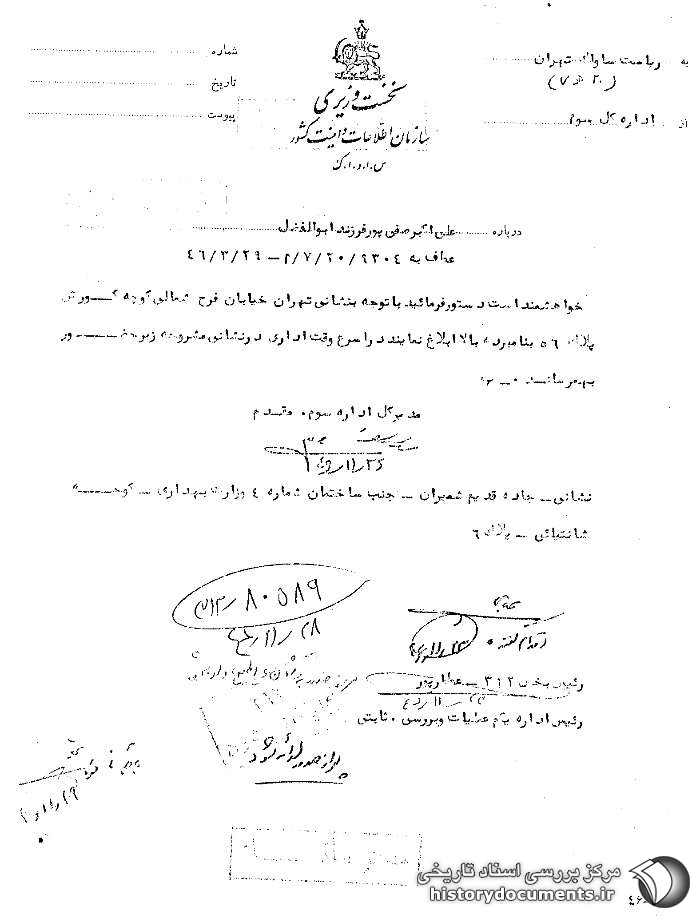 به ریاست ساواک تهران
(۲۰ ﻫ ۷)
از اداره کل سوم
نخست وزیری
سازمان اطلاعات و امنیت کشور
س.ا.و.ا.ک
شماره
تاریخ
پیوست
درباره علی اکبر صفی پور فرزند ابوالفضل
عطف به ۹۳۰۴/۲۰/۷/م – ۴۶/۳/۲۹
خواهشمند است دستور فرمائید با توجه بنشانی تهران خیابان فرح شمالی کوچه کورش
پلاک ۵۶ بنامبرده بالا ابلاغ نمایند در اسرع وقت اداری در نشانی مشروحه زیر حضور
بهمرسانند
مدیرکل اداره سوم. مقدم
نشانی – جاده قدیم شمیران – جنب ساختمان شماره ۴ وزارت بهداری – کوچه
شانتیائی – پلاک ۶
۸۰۵۸۹
اقدام کننده
رئیس بخش ۳۱۲ – عطارپور
رئیس اداره یکم عملیات و بررسی. ثابتی
پس از صدور ارائه شود
مرکز بررسی اسناد تاریخی
historydocuments.ir